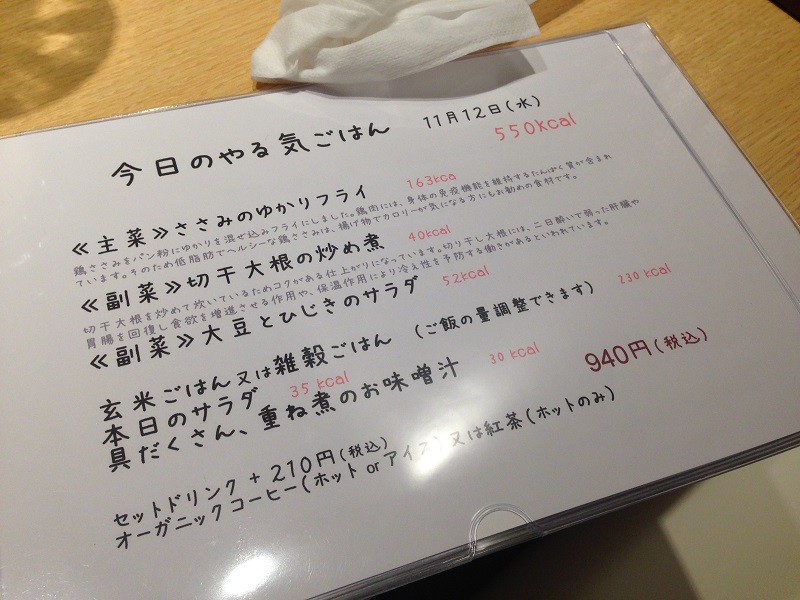 今日のやる気ごはん 11月12日(水)
550kcal
≪主菜≫ささみのゆかりフライ 163kca
鶏ささみをパン粉にゆかりを混ぜ込みフライにしました。鶏肉には、身体の免疫機能を維持するたんぱく質が含まれ
ています。そのため低脂肪でヘルシーな鶏ささみは、揚げ物でカロリーが気になる方にもお勧めの食材です。
≪副菜≫切干大根の炒め煮 40kcal
切干大根を炒めて炊いているためコクがある仕上がりになっています。切り干し大根には、二日酔いで弱った肝臓や
胃腸を回復し食欲を増進させる作用や、保温作用により冷え性を予防する働きがあるといわれています。
≪副菜≫大豆とひじきのサラダ 52kcal
玄米ごはん又は雑穀ごはん (ご飯の量調整できます) 230kcal
本日のサラダ 35kcal
具だくさん、重ね煮のお味噌汁 30kcal
940円(税込)
セットドリンク + 210円(税込)
オーガニックコーヒー(ホット or アイス) 又は紅茶(ホットのみ)